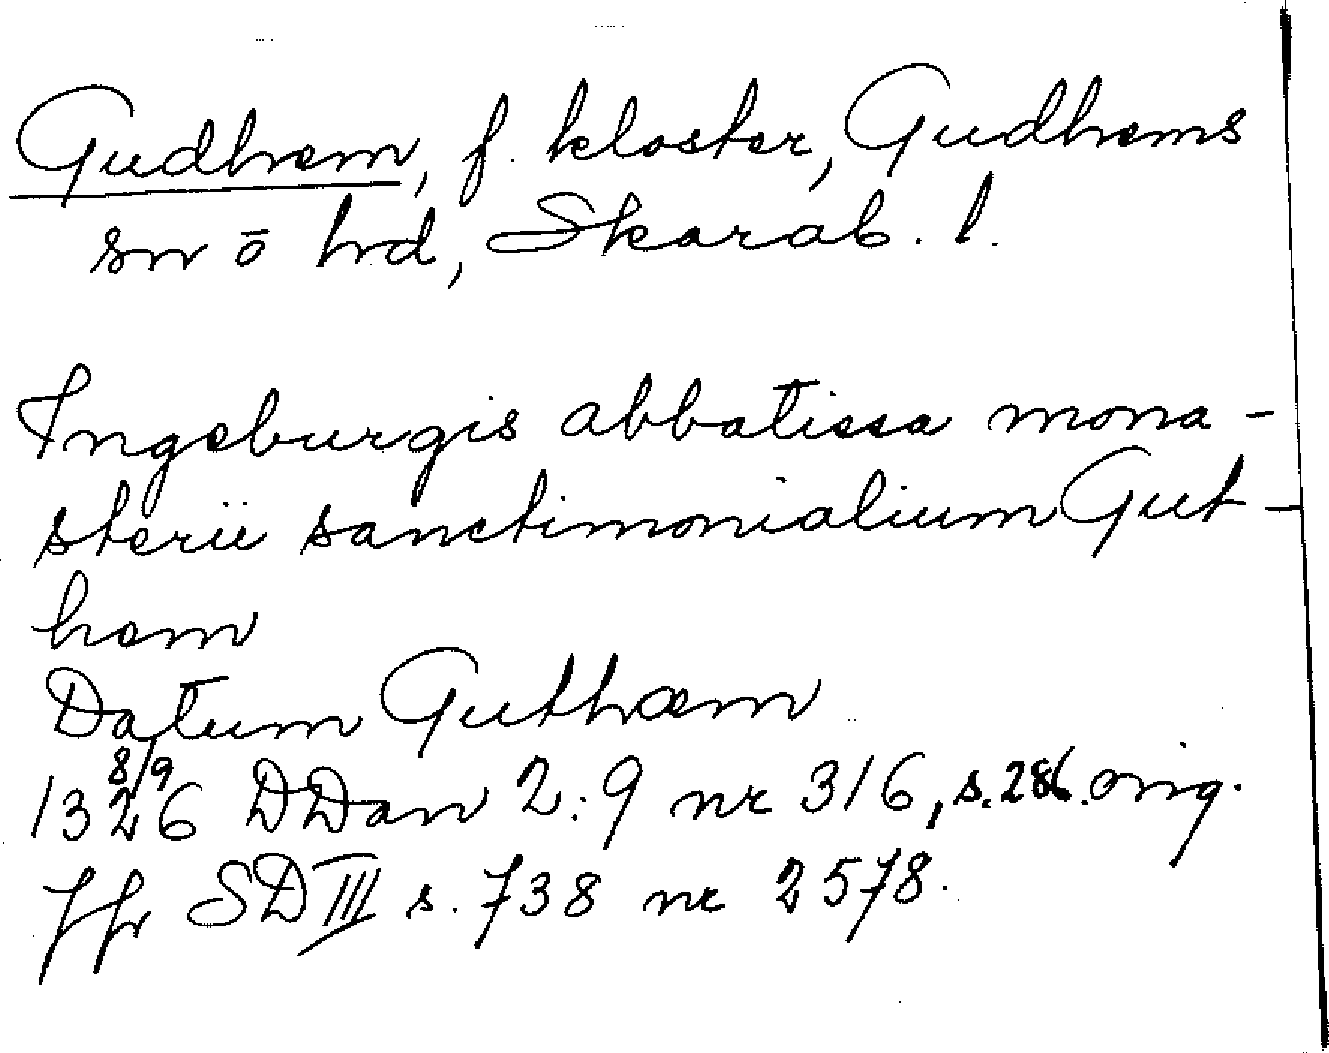 Gudhem, f. kloster, Gudhems
sn ō hd, Skarab. l.
Ingeburgis abbatissa mona-
sterii sanctimonialium Gut-
hem
Datum Guthæm
1326 8/9 DDan 2:9 nr 316, s. 286. orig.
Jfr SD III s. 738 nr 2578.